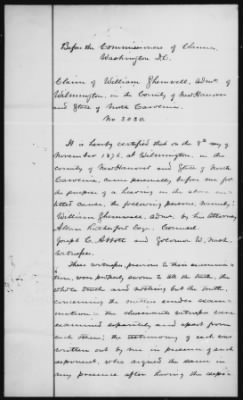 Before the Commissioners of Claims,
Washington D.C.
Claim of William Admr. of
Wilmington, in the County of New Hanover
and State of North Carolina.
No
It is hereby certified that on the 8th day of
November 1876, at Wilmington, in the
county of New Hanover and State of North
Carolina, came personally before me for
the purpose of a hearing in the above en-
titled cause, the following persons namely:
William Admr. by his attorney
Allan Rutherford Esq. Counsel.
Joseph C. Abbott and Governor W.
witnesses.
These witnesses previous to their examina-
tion, were properly sworn to tell the truth, the
whole truth and nothing but the truth,
concerning the matters under exam-
ination - the witnesses were
examined separately and apart from
each other; the testimony of each was
written out by me in presence of each
deponent, who signed the same in
my presence after having the depo-